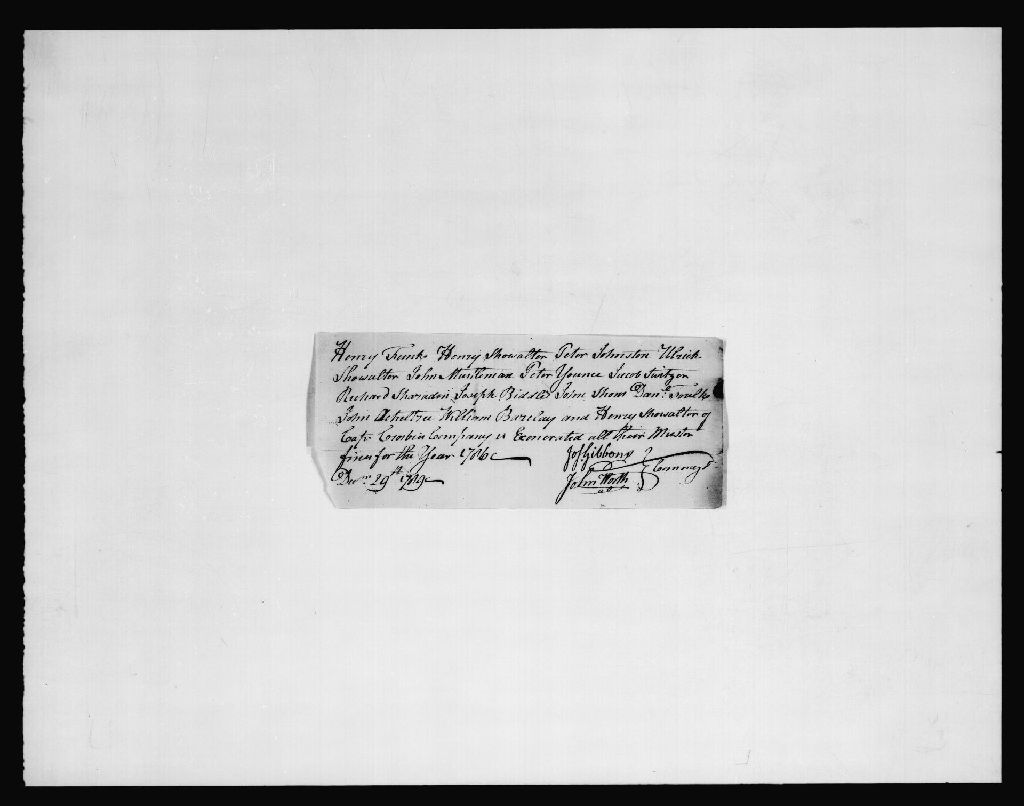 Henry Funk Henry Showalter Peter Johnston Ulrich
Showalter John Peter Younce Jacob
Richard Sharadin Joseph Biddle John Shons Danl. Foulk
John William Barclay and Henry Showalter of
Capt. Company is Exonerated all their Muster
fines for the Year 1786
Decr. 29th 1789
Jos Gibbons
John Worth